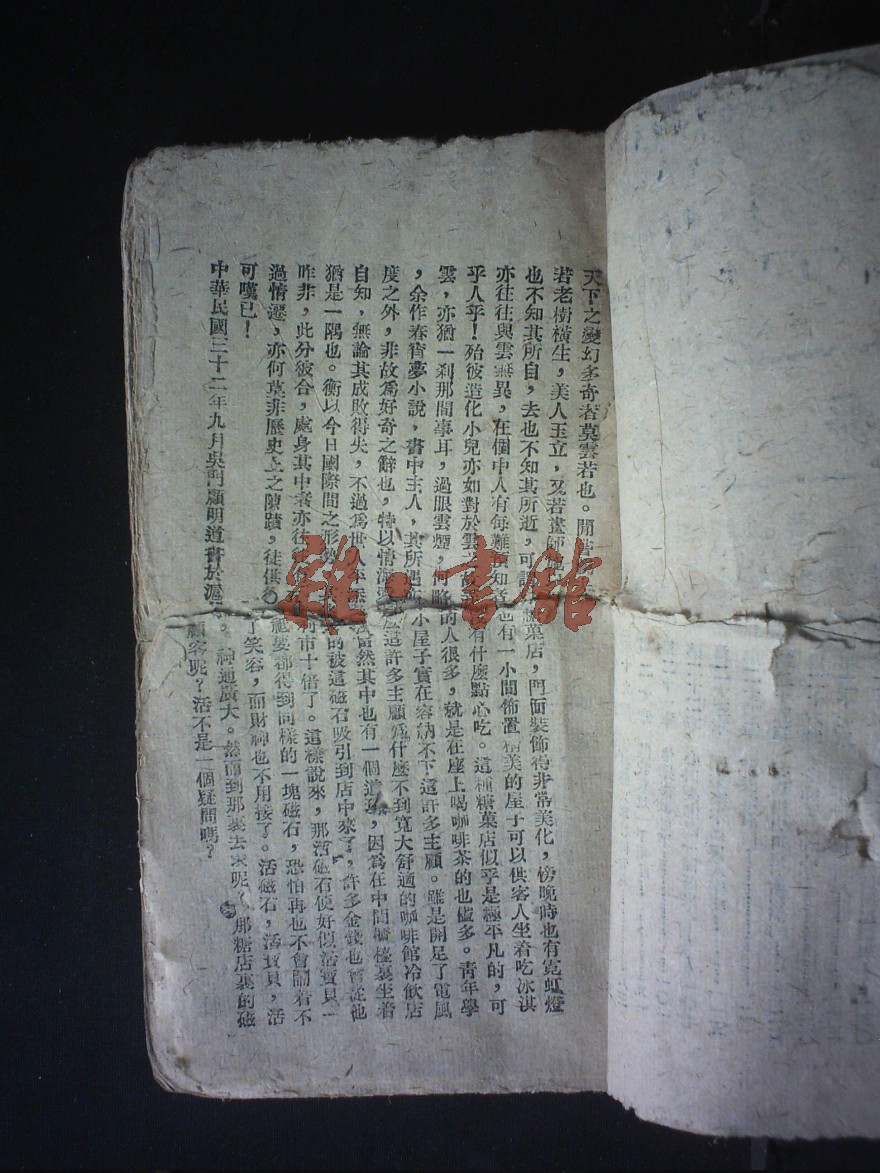 天下之變幻多奇者莫雲若也。閒嘗
若老樹橫生，美人玉立，又若畫師
也不知其所自，去也不知其所逝，可
亦往往與雲無異，在個中人有每難預知者
乎人乎！殆彼造化小兒亦如對於雲
雲，亦猶一剎那間事耳，過眼雲煙，何
，余作春宵夢小說，書中主人，其所遇
度之外，非故爲好奇之辭也，特以情海
自知，無論其成敗得失，不過爲世人平
猶是一隅也。衡以今日國際間之形勢
昨非，此分彼合，處身其中者亦往
過情遷，亦何莫非歷史上之陳蹟，徒供
可嘆已！
中華民國三十二年九月吳門顧明道書於滬
糖菓店，門面裝飾得非常美化，傍晚時也有霓虹燈
也有一小間佈置精美的屋子可以供客人坐着吃冰淇
有什麼點心吃。這種糖菓店似乎是極平凡的，可
的人很多，就是在座上喝咖啡茶的也儘多。青年學
小屋子實在容納不下這許多主顧。雖是開足了電風
麼這許多主顧爲什麼不到寬大舒適的咖啡館冷飲店
當然其中也有一個道理，因爲在中間櫃檯裏坐着
的被這磁石吸引到店中來了，許多金錢也會從他
利市十倍了。這樣說來，那活磁石便好似活寶貝一
都得到同樣的一塊磁石，恐怕再也不會鬧着不
了笑容，而財神也不用接了。活磁石，活寶貝，活
神通廣大。然而到那裏去求呢？那糖店裏的磁
顧客呢？活不是一個疑問嗎？
雜·書館